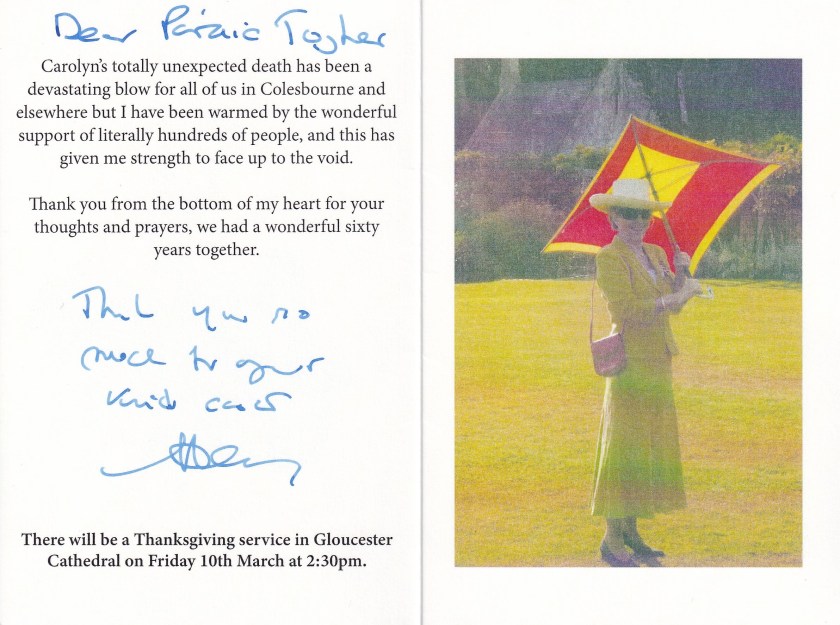 Dear Páraic Togher
Carolyn's totally unexpected death has been a
devastating blow for all of us in Colesbourne and
elsewhere but I have been warmed by the wonderful
support of literally hundreds of people, and this has
given me strength to face up to the void.
Thank you from the bottom of my heart for your
thoughts and prayers, we had a wonderful sixty
years together.
Thank you so
much for your
kind card
Henry
There will be a Thanksgiving service in Gloucester
Cathedral on Friday 10th March at 2:30pm.